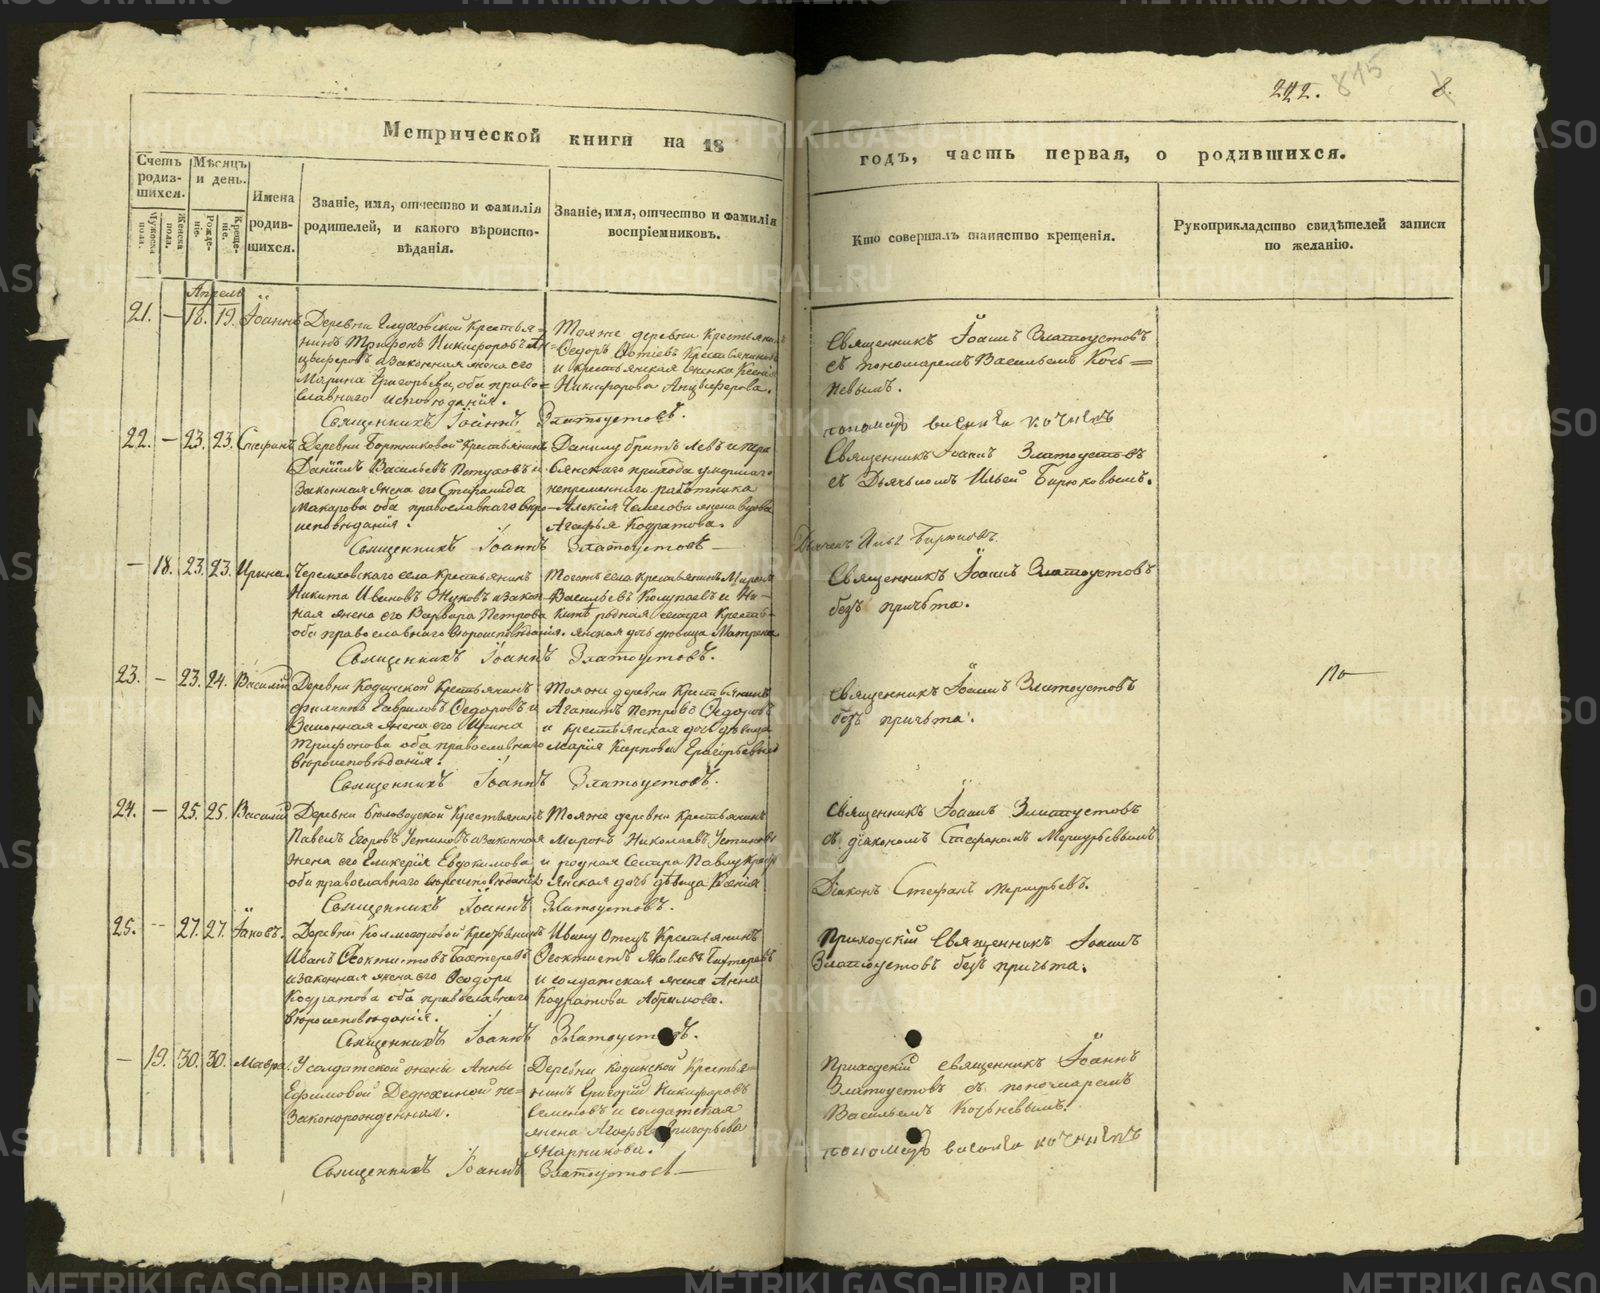 222. 815 8.
Метрической книги на 18
годъ, часть первая, о родившихся.
Счетъ родив-шихся.
Мѣсяцъ и день.
Имена родив-шихся.
Званіе, имя, отчество и фамилія родителей, и какого вѣроиспо-вѣданія.
Званіе, имя, отчество и фамилія воспріемниковъ.
Кто совершалъ таинство крещенія.
Рукоприкладство свидѣтелей записи по желанію.
Мужеска пола.
Женска пола.
Рожде-ніе.
Креще-ніе.
Апрель
21. — 18. 19. Іоаннъ
Деревни Глуховской Крестья-
нинъ Трифонъ Никифоровъ Ан-
цыферовъ и законная жена его
Марина Григорьева, оба право-
славнаго исповѣданія.
Тояже деревни Крестьянинъ
Ѳедоръ Фотіевъ
и крестьянская женка Ксенія
Никифорова Анцыферова.
Священникъ Іоаннъ Златоустовъ
съ пономаремъ Васильемъ Коче=
невымъ.
Священникъ Іоаннъ Златоустовъ.
22. — 23. 23. Стефанъ
Деревни Бортниковой Крестьянинъ
Даніилъ Васильевъ Петуховъ и
Законная жена его Стефанида
Макарова оба православнаго вѣро-
исповѣданія.
Данилу братъ Левъ и
прихода умершаго
непременнаго работника
Алексія жена вдова
Агафья Кодратова.
Священникъ Іоаннъ Златоустовъ
съ Дьячкомъ Ильей Бирюковымъ.
Священникъ Іоаннъ Златоустовъ —
Дьячекъ Илья Бирюковъ.
— 18. 23. 23. Ирина.
Черемховскаго села Крестьянинъ
Никита Ивановъ Жуковъ и закон-
ная жена его Варвара Петрова
оба православнаго вѣроисповѣданія.
Тогоже села Крестьянинъ Миронъ
Васильевъ и Ни-
китѣ родная сестра Кресть-
янская дочь девица Матрена
Священникъ Іоаннъ Златоустовъ
безъ причьта.
Священникъ Іоаннъ Златоустовъ.
23. — 23. 24. Василій
Деревни Кодинской Крестьянинъ
Филиппъ Гавриловъ Ѳедоровъ и
Законная жена его Ирина
Трифонова оба православнаго
вѣроисповѣданія.
Тояже деревни Крестьянинъ
Агапитъ Петровъ Ѳедоровъ
и крестьянская дочь дѣвица
Марія Карпова
Священникъ Іоаннъ Златоустовъ
безъ причьта.
По
Священникъ Іоаннъ Златоустовъ.
24. — 25. 25. Василій
Деревни Крестьянинъ
Павелъ Егоровъ Устиновъ и законная
жена его Гликерія Евдокимова
оба православнаго вѣроисповѣданія
Тояже деревни Крестьянинъ
Миронъ Николаевъ Устиновъ
и родная Сестра Павлу Кресть
янская дочь дѣвица Ксенія
Священникъ Іоаннъ Златоустовъ
съ діакономъ Стефаномъ Меркурьевымъ
Діаконъ Стефанъ Меркурьевъ.
Священникъ Іоаннъ Златоустовъ.
25. — 27. 27. Іаковъ.
Деревни Колмогоровой Крестьянинъ
Иванъ Ѳеоктистовъ Бахтеревъ
и законная жена его Ѳеодора
Кодратова оба православнаго
вѣроисповѣданія.
Ивану Отецъ Крестьянинъ
Ѳеоктистъ Яковлевъ Бахтеревъ
и солдатская жена Анна
Кодратова Абрамова.
Приходскій Священникъ Іоаннъ
Златоустовъ безъ причьта.
Священникъ Іоаннъ Златоустовъ.
— 19. 30. 30. Мавра.
У солдатской жены Анны
Ефимовой Дедюхиной не-
Законорожденная.
Деревни Кодинской Крестья-
нинъ Григорій Никифоровъ
Семеновъ и солдатская
жена Агафья Григорьева
Приходскій священникъ Іоаннъ
Златоустовъ съ пономаремъ
Васильемъ Коченевымъ.
Священникъ Іоаннъ Златоустовъ —
METRIKI.GASO-URAL.RU